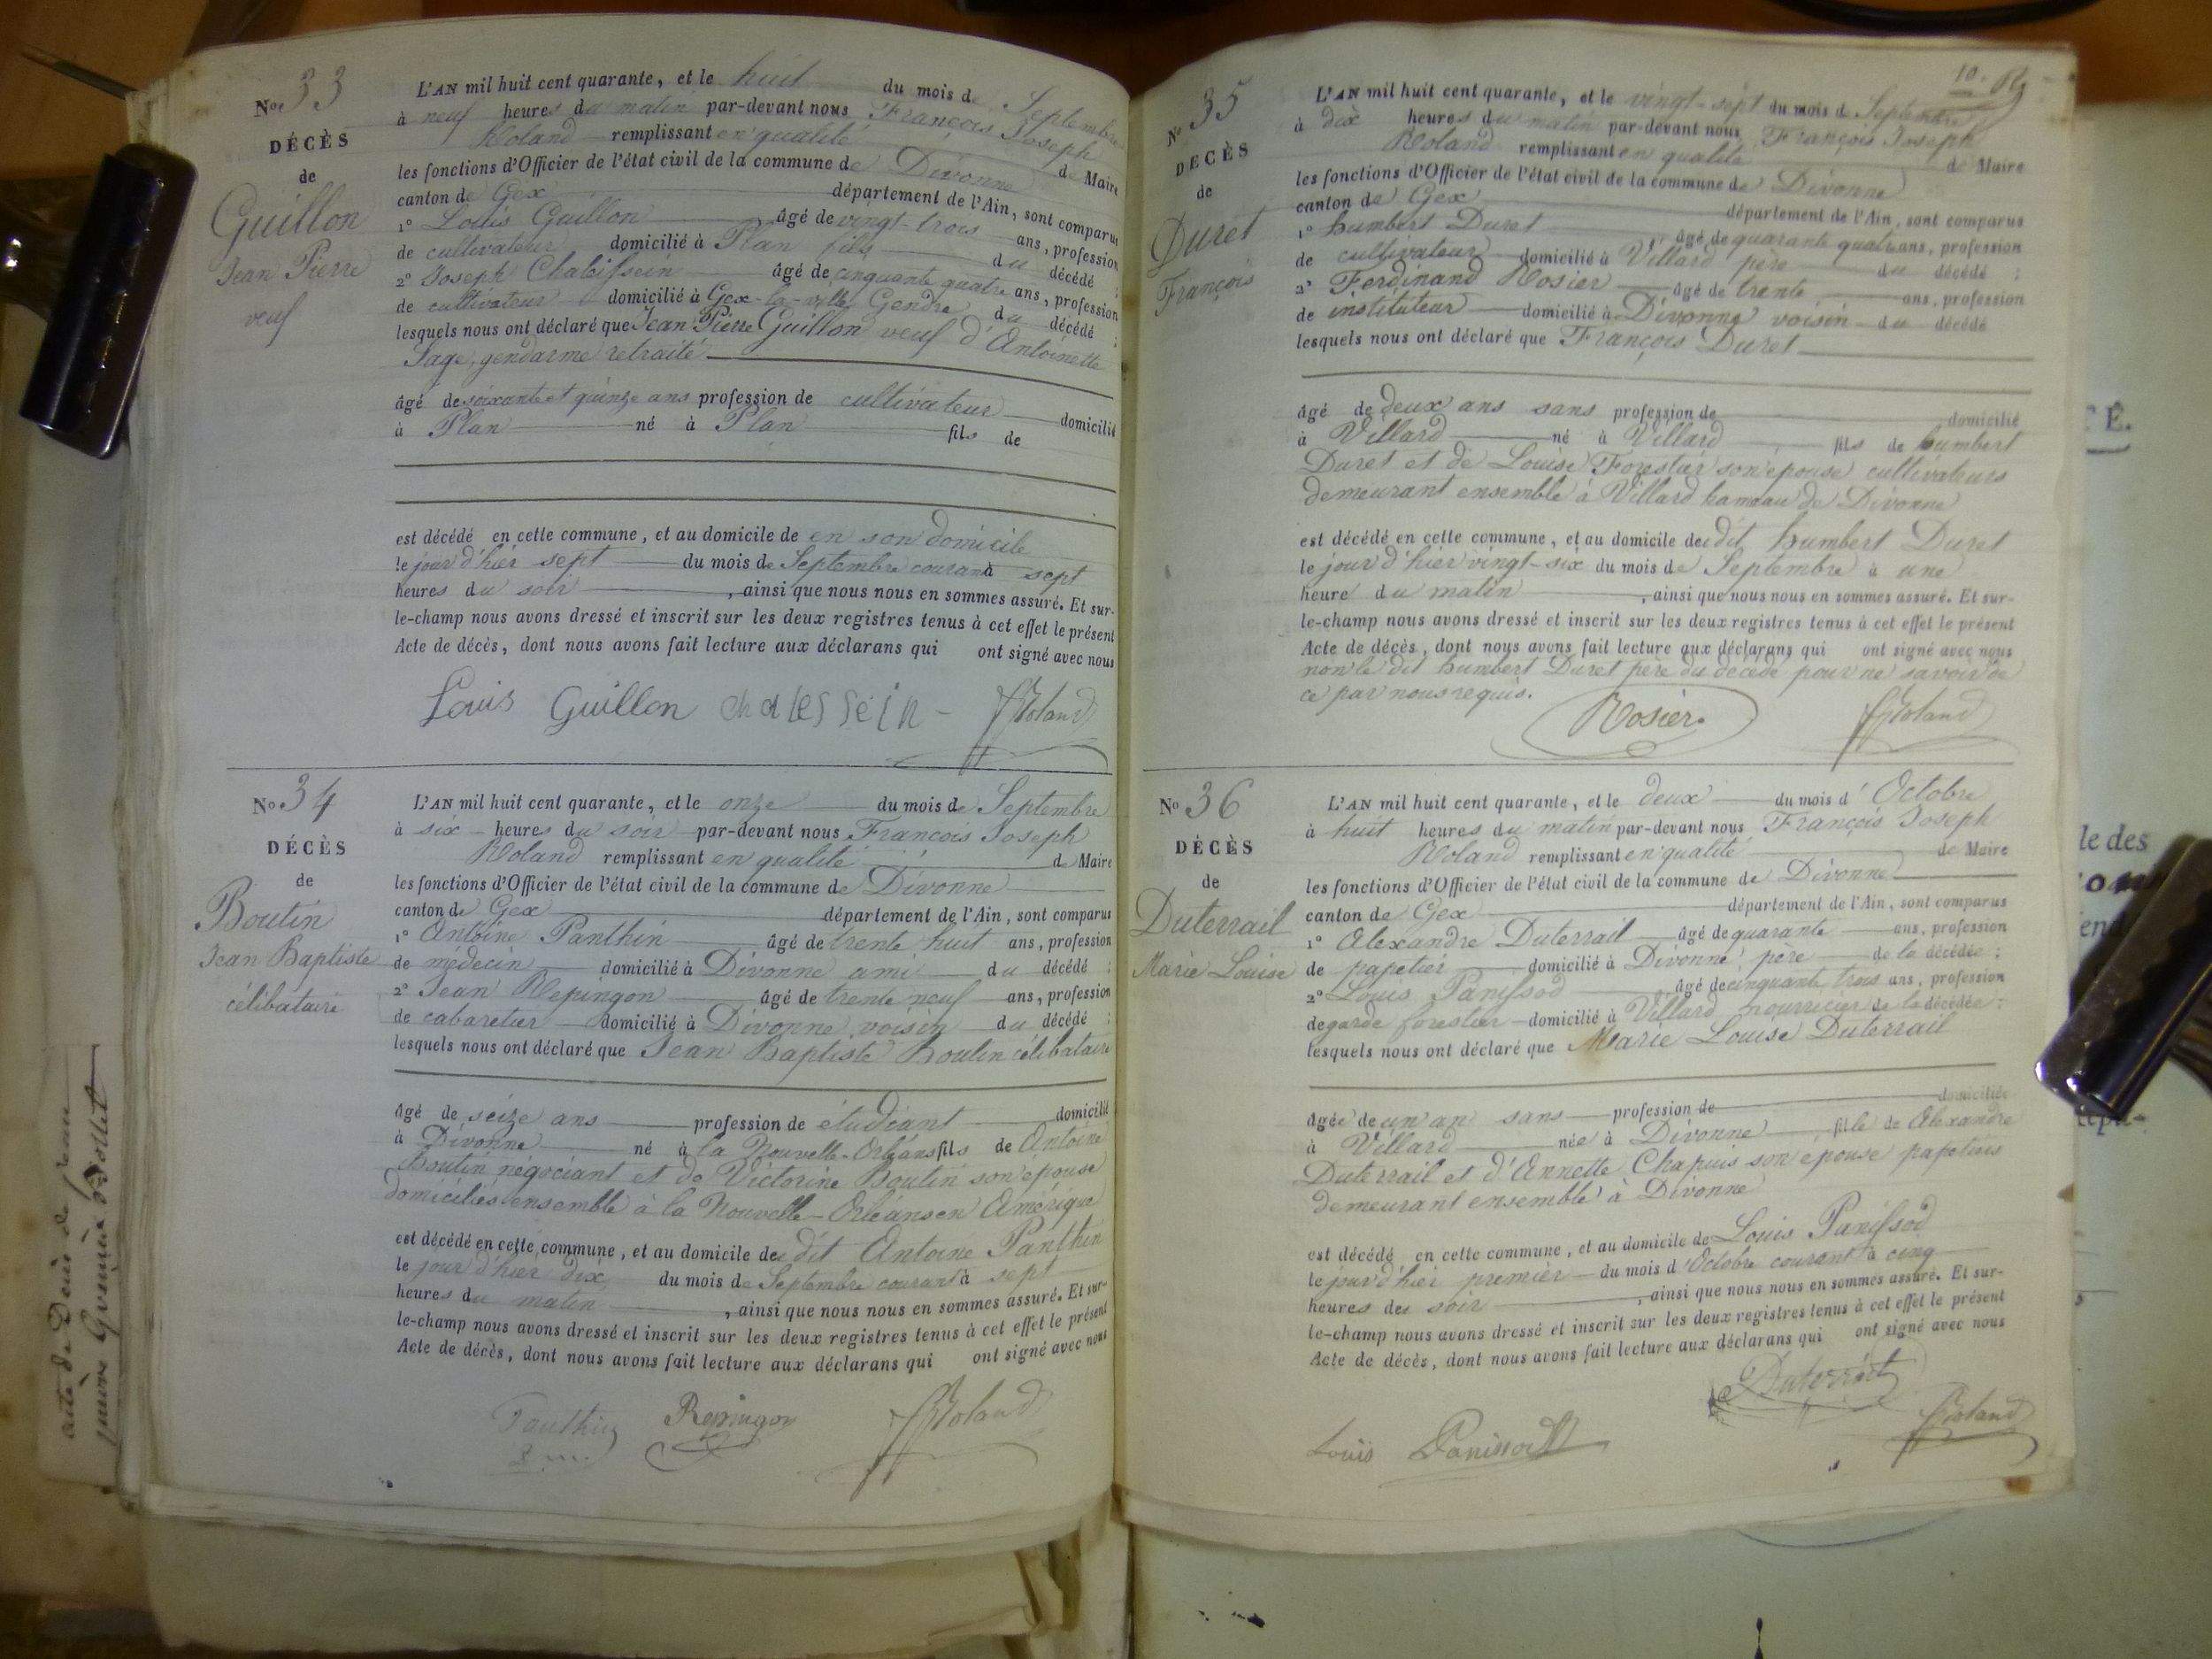 No. 33
DÉCÈS
de
Guillon
Jean Pierre
veuf
L'AN mil huit cent quarante, et le huit du mois de Septembre
à neuf heures du matin par-devant nous François Joseph
Roland remplissant en qualité de Maire
les fonctions d'Officier de l'état civil de la commune de Divonne
canton de Gex département de l'Ain, sont comparus
1° Louis Guillon âgé de vingt-trois ans, profession
de cultivateur domicilié à Plan fils du décédé ;
2° Joseph Chalessein âgé de cinquante quatre ans, profession
de cultivateur domicilié à Gex-la-ville Gendre du décédé ;
lesquels nous ont déclaré que Jean Pierre Guillon veuf d'Antoinette
Sage, gendarme retraité
âgé de soixante et quinze ans profession de cultivateur domicilié
à Plan né à Plan fils de
est décédé en cette commune, et au domicile de en son domicile
le jour d'hier sept du mois de Septembre courant à sept
heures du soir , ainsi que nous nous en sommes assuré. Et sur-
le-champ nous avons dressé et inscrit sur les deux registres tenus à cet effet le présent
Acte de décès, dont nous avons fait lecture aux déclarans qui ont signé avec nous
Louis Guillon chalessein fJRoland
No. 34
DÉCÈS
de
Boutin
Jean Baptiste
célibataire
L'AN mil huit cent quarante, et le onze du mois de Septembre
à six heures du soir par-devant nous François Joseph
Roland remplissant en qualité de Maire
les fonctions d'Officier de l'état civil de la commune de Divonne
canton de Gex département de l'Ain, sont comparus
1° Antoine Panthin âgé de trente huit ans, profession
de médecin domicilié à Divonne ami du décédé ;
2° Jean Repingon âgé de trente neuf ans, profession
de cabaretier domicilié à Divonne voisin du décédé ;
lesquels nous ont déclaré que Jean Baptiste Boutin célibataire
âgé de seize ans profession de étudiant domicilié
à Divonne né à la Nouvelle-Orléans fils de Antoine
Boutin négociant et de Victorine Boutin son épouse
domiciliés ensemble à la Nouvelle-Orléans en Amérique
est décédé en cette commune, et au domicile de dit Antoine Panthin
le jour d'hier dix du mois de Septembre courant à sept
heures du matin , ainsi que nous nous en sommes assuré. Et sur-
le-champ nous avons dressé et inscrit sur les deux registres tenus à cet effet le présent
Acte de décès, dont nous avons fait lecture aux déclarans qui ont signé avec nous
Panthin Repingon fJRoland
10.
No 35
DÉCÈS
de
Duret
François
L'AN mil huit cent quarante, et le vingt-sept du mois de Septembre
à dix heures du matin par-devant nous François Joseph
Roland remplissant en qualité de Maire
les fonctions d'Officier de l'état civil de la commune de Divonne
canton de Gex département de l'Ain, sont comparus
1° humbert Duret âgé de quarante quatre ans, profession
de cultivateur domicilié à Villard père du décédé ;
2° Ferdinand Rosier âgé de trente ans, profession
de instituteur domicilié à Divonne voisin du décédé
lesquels nous ont déclaré que François Duret
âgé de deux ans sans profession de domicilié
à Villard né à Villard fils de humbert
Duret et de Louise Forestier son épouse cultivateurs
demeurant ensemble à Villard hameau de Divonne
est décédé en cette commune, et au domicile de dit humbert Duret
le jour d'hier vingt-six du mois de Septembre à une
heure du matin , ainsi que nous nous en sommes assuré. Et sur-
le-champ nous avons dressé et inscrit sur les deux registres tenus à cet effet le présent
Acte de décès, dont nous avons fait lecture aux déclarans qui ont signé avec nous
non le dit humbert Duret père du décédé pour ne savoir de
ce par nous requis.
Rosier. fJRoland
No 36
DÉCÈS
de
Duterrail
Marie Louise
L'AN mil huit cent quarante, et le deux du mois d'Octobre
à huit heures du matin par-devant nous François Joseph
Roland remplissant en qualité de Maire
les fonctions d'Officier de l'état civil de la commune de Divonne
canton de Gex département de l'Ain, sont comparus
1° Alexandre Duterrail âgé de quarante ans, profession
de papetier domicilié à Divonne père de la décédée ;
2° Louis Panissod âgé de cinquante trois ans, profession
de garde forestier domicilié à Villard nourricier de la décédée ;
lesquels nous ont déclaré que Marie Louise Duterrail
âgée de un an sans profession de domiciliée
à Villard née à Divonne fille de Alexandre
Duterrail et d'Annette Chapuis son épouse papetiers
demeurant ensemble à Divonne
est décédé en cette commune, et au domicile de Louis Panissod
le jour d'hier premier du mois d'Octobre courant à cinq
heures du soir , ainsi que nous nous en sommes assuré. Et sur-
le-champ nous avons dressé et inscrit sur les deux registres tenus à cet effet le présent
Acte de décès, dont nous avons fait lecture aux déclarans qui ont signé avec nous
Duterrail
Louis Panissod fJRoland
acte de décès de
É.
le des